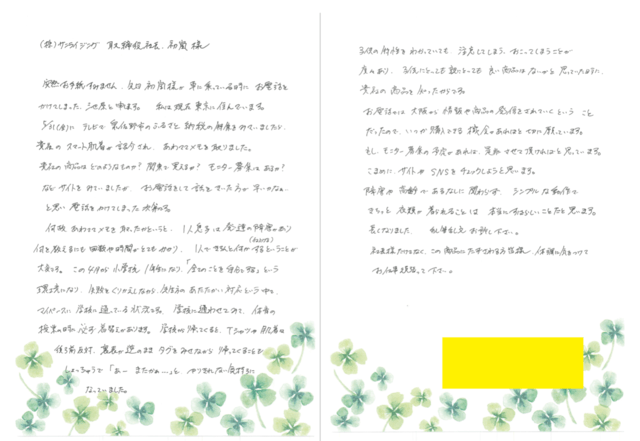 (株)サンライジング 取締役社長、初瀬様
突然お手紙すみません。先日初瀬様が車に乗っている時にお電話を
かけてしまった、と申します。私は現在東京に住んでいます。
5/31(金)にテレビで泉佐野市のふるさと納税の解の をみていましたが、
貴店のスマート肌着が紹介され、あわててメモを取りました。
貴社の商品はどのようなものか?関東で買えるか?モニター募集はあるか?
などサイトをみていましたが、お電話をして話をした方が早いかなぁ…
と思い電話をかけてしまった次第です。
何故あわててメモを取ったかというと、1人息子は発達の障害があり
何を教えるにも回数や時間がとてもかかり、1人できちんと何かする(仕上げる)ということが
大変です。この4月から小学校1年生になり、「自分のことを自分でする」という
環境になり、失敗をくりかえしながら、先生方のあたたかい対応という中で、
マイペースに学校に通っている状況です。学校に通わせてみて、体育の
授業の時に必ず着替えがあります。学校から帰ってくると、Tシャツや肌着は
後ろ前反対、裏表が逆のままタグをみせながら帰ってくることも
しょっちゅうで「あー またかぁ…」と、やりきれない気持ちに
なっていました。
子供の特性をわかっていても、注意してしまう、おこってしまうことが
度々あり、子供にとっても親にとっても良い商品はないかと思っていた時に、
貴社の商品を知ったからです。
お電話では大阪から情報や商品の発信をされていくということ
だったので、いつか購入できる機会があればと切に願っています。
もし、モニター募集の予定があれば、参加させて頂ければと思っています。
こまめにサイトやSNSをチェックしようと思います。
障害や高齢があるなしに関わらず、シンプルな動作で
きちっと衣類が着られることは本当にすばらしいことだと思います。
長くなりました。乱筆乱文お許し下さい。
社長様だけでなく、この商品にたずさわる方皆様、体調に気をつけて
お仕事頑張って下さい。